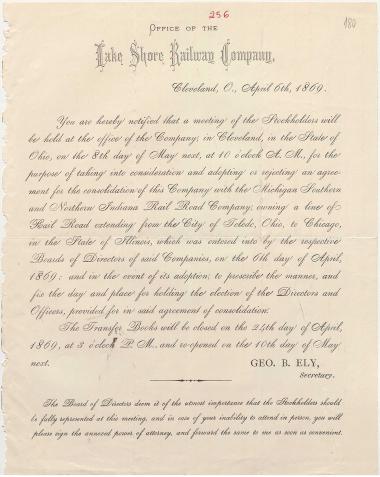 256
180
OFFICE OF THE
Lake Shore Railway Company,
Cleveland, O., April 6th, 1869.
You are hereby notified that a meeting of the Stockholders will
be held at the office of the Company, in Cleveland, in the State of
Ohio, on the 8th day of May next, at 10 o'clock A. M., for the
purpose of taking into consideration and adopting or rejecting an agree-
ment for the consolidation of this Company with the Michigan Southern
and Northern Indiana Rail Road Company, owning a line of
Rail Road extending from the City of Toledo, Ohio, to Chicago,
in the State of Illinois, which was entered into by the respective
Boards of Directors of said Companies, on the 6th day of April,
1869: and in the event of its adoption, to prescribe the manner, and
fix the day and place for holding the election of the Directors and
Officers, provided for in said agreement of consolidation.
The Transfer Books will be closed on the 24th day of April,
1869, at 3 o'clock P. M., and re-opened on the 10th day of May
next.
GEO. B. ELY,
Secretary.
The Board of Directors deem it of the utmost importance that the Stockholders should
be fully represented at this meeting, and in case of your inability to attend in person, you will
please sign the annexed power of attorney, and forward the same to me as soon as convenient.